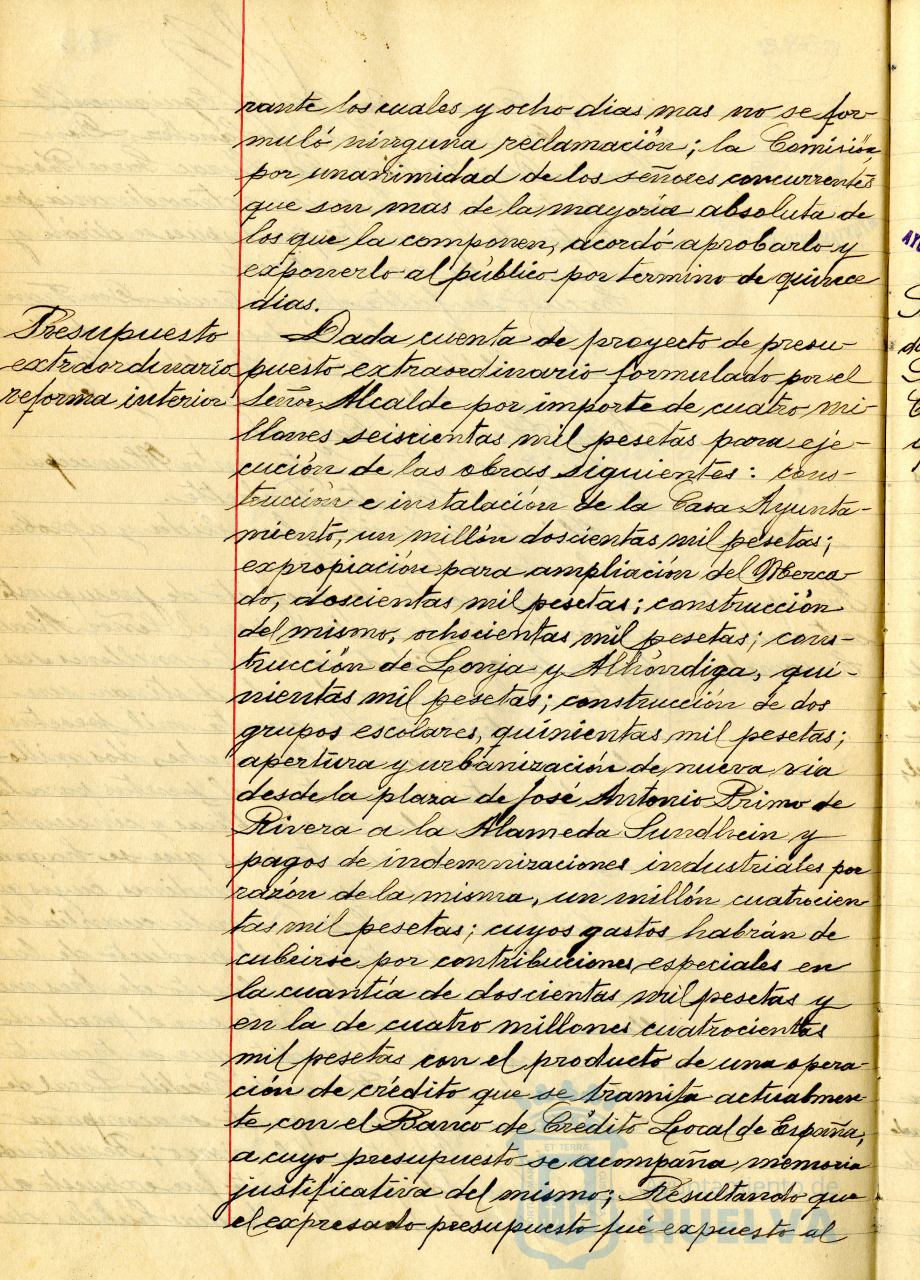 rante los cuales y ocho dias mas no se for-
muló ninguna reclamación; la Comisión,
por unanimidad de los señores concurrentes
que son mas de la mayoría absoluta de
los que la componen, acordó aprobarlo y
exponerlo al público por termino de quince
dias.
Presupuesto
extraordinario
reforma interior
Dada cuenta de proyecto de presu-
puesto extraordinario formulado por el
Señor Alcalde por importe de cuatro mi-
llones seiscientas mil pesetas para eje-
cución de las obras siguientes: cons-
trucción e instalación de la Casa Ayunta-
miento, un millón doscientas mil pesetas;
expropiación para ampliación del Merca-
do, doscientas mil pesetas; construcción
del mismo, ochocientas mil pesetas; cons-
trucción de Lonja y Alhóndiga, qui-
nientas mil pesetas; construcción de dos
grupos escolares, quinientas mil pesetas;
apertura y urbanización de nueva via
desde la plaza de José Antonio Primo de
Rivera a la Alameda Sundhein y
pagos de indemnizaciones industriales por
razón de la misma, un millón cuatrocien-
tas mil pesetas; cuyos gastos habrán de
cubrirse por contribuciones especiales en
la cuantía de doscientas mil pesetas y
en la de cuatro millones cuatrocientas
mil pesetas con el producto de una opera-
ción de crédito que se tramita actualmen-
te con el Banco de Crédito Local de España,
a cuyo presupuesto se acompaña memoria
justificativa del mismo; Resultando que
el expresado presupuesto fué expuesto al
Ayuntamiento de
HUELVA